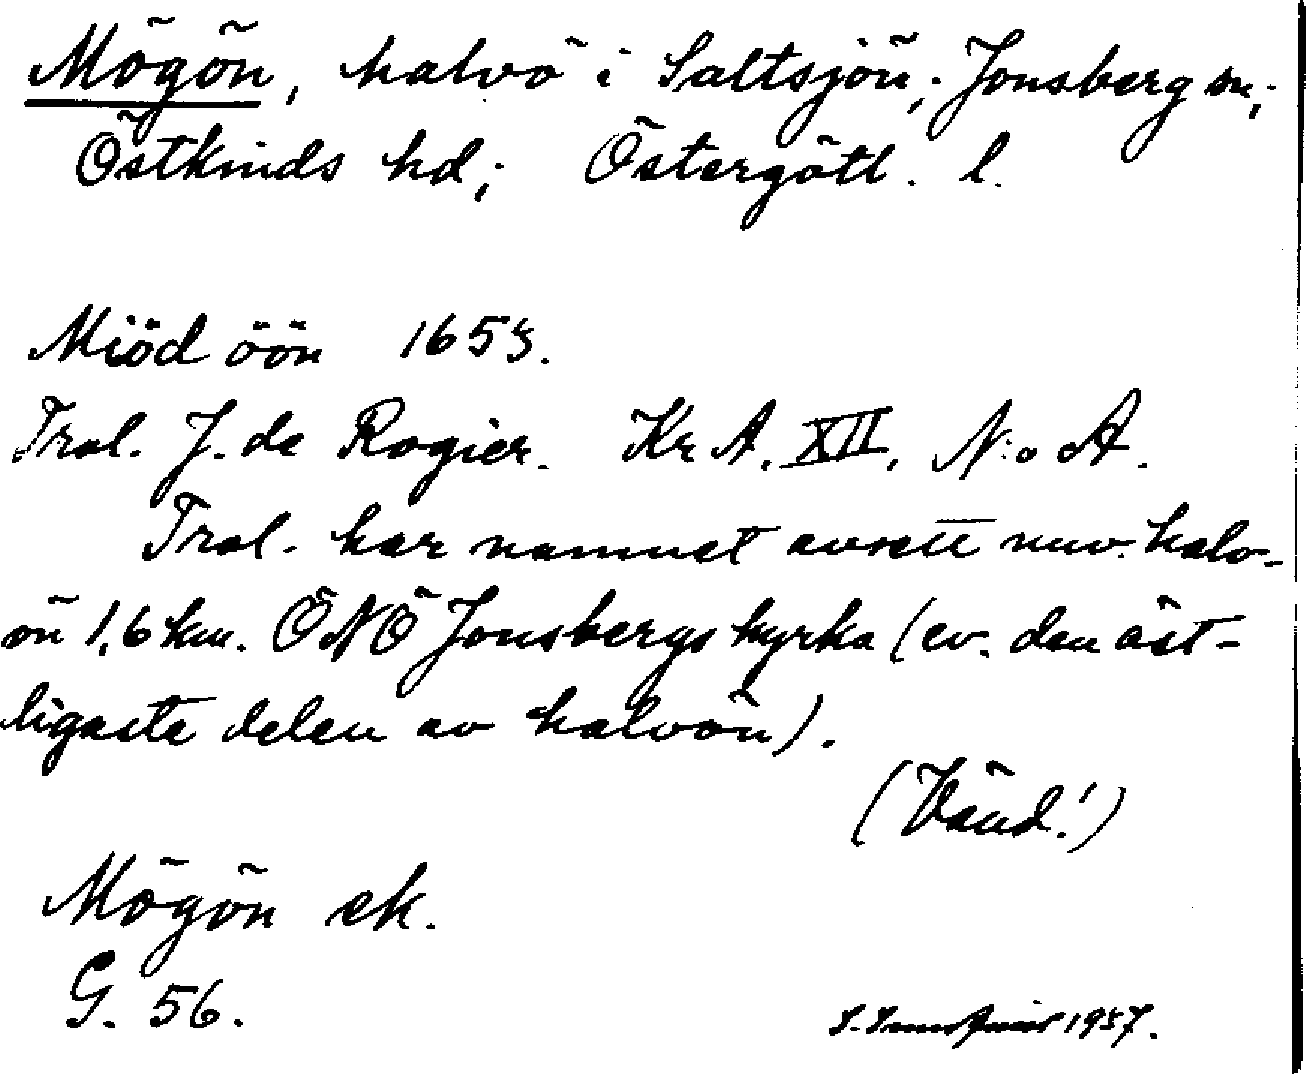 Mögön, halvö i Saltsjön; Jonsberg sn;
Östkinds hd; Östergötl. l.
Miöd öön 1653.
Trol. J. de Rogier. Kr A. XII, N:o A.
Trol. har namnet avsett nuv. halv-
ön 1,6 km. ÖNÖ Jonsbergs kyrka (ev. den öst-
ligaste delen av halvön).
(Vänd!)
Mögön ek.
G. 56.
1937.